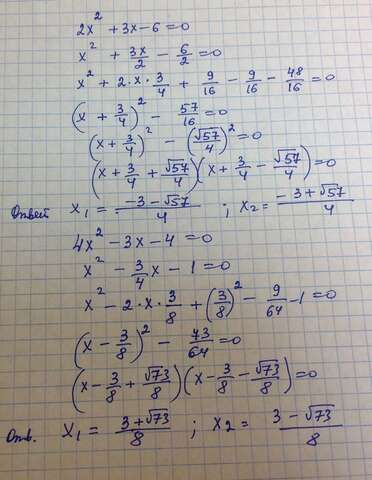 2x² + 3x - 6 = 0
x² + 3x/2 - 6/2 = 0
x² + 2·x·3/4 + 9/16 - 9/16 - 48/16 = 0
(x + 3/4)² - 57/16 = 0
(x + 3/4)² - (√57/4)² = 0
(x + 3/4 + √57/4)(x + 3/4 - √57/4) = 0
Ответ x₁ = -3-√57/4 ; x₂ = -3+√57/4
4x² - 3x - 4 = 0
x² - 3/4 x - 1 = 0
x² - 2·x·3/8 + (3/8)² - 9/64 - 1 = 0
(x - 3/8)² - 73/64 = 0
(x - 3/8 + √73/8)(x - 3/8 - √73/8) = 0
Отв. x₁ = 3+√73/8 ; x₂ = 3-√73/8